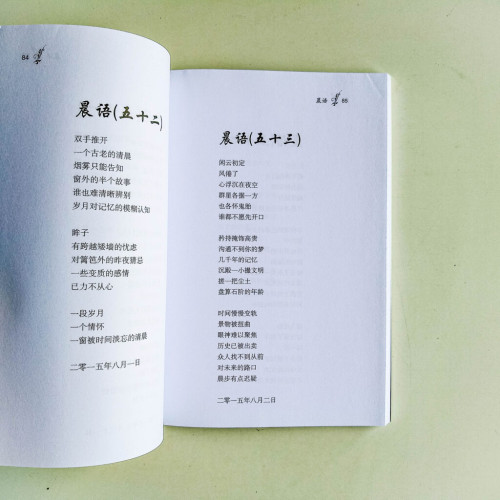 84
晨语(五十二)
双手推开
一个古老的清晨
烟雾只能告知
窗外的半个故事
谁也难清晰辨别
岁月对记忆的模糊认知
眸子
有跨越矮墙的忧虑
对篱笆外的昨夜猜忌
一些变质的感情
已力不从心
一段岁月
一个情怀
一窗被时间淡忘的清晨
二零一五年八月一日
晨语 85
晨语(五十三)
闲云初定
风倦了
心浮沉在夜空
群里各据一方
也各怀鬼胎
谁都不愿先开口
矜持掩饰高贵
沟通不到你的梦
几千年的记忆
沉殿一小撮文明
搓一把尘土
盘算石阶的年龄
时间慢慢变轨
景物被扭曲
眼神难以聚焦
历史已被出卖
众人找不到从前
对未来的路口
晨步有点迟疑
二零一五年八月二日